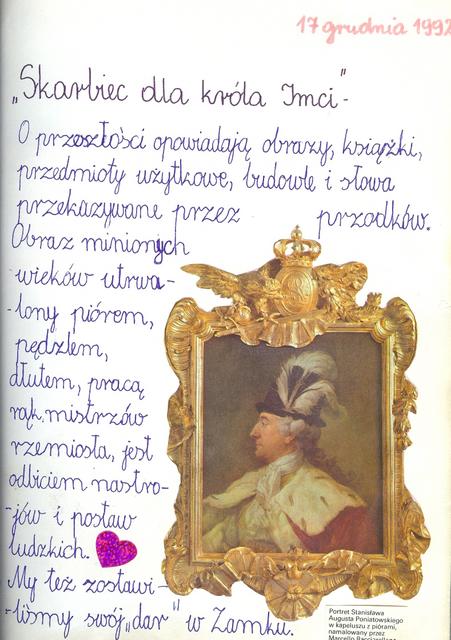 17 grudnia 1992
„Skarbiec dla króla Imci"-
O przeszłości opowiadają obrazy, książki,
przedmioty użytkowe, budowle i słowa
przekazywane przez przodków.
Obraz minionych
wieków utrwa-
-lony piórem,
pędzlem,
dłutem, pracą
rąk mistrzów
rzemiosła, jest
odbiciem nastro-
-jów i postaw
ludzkich.
My też zostawi-
-liśmy swój „dar" w Zamku.
Portret Stanisława
Augusta Poniatowskiego
w kapeluszu z piórami,
namalowany przez
Marcello Bacciarellego